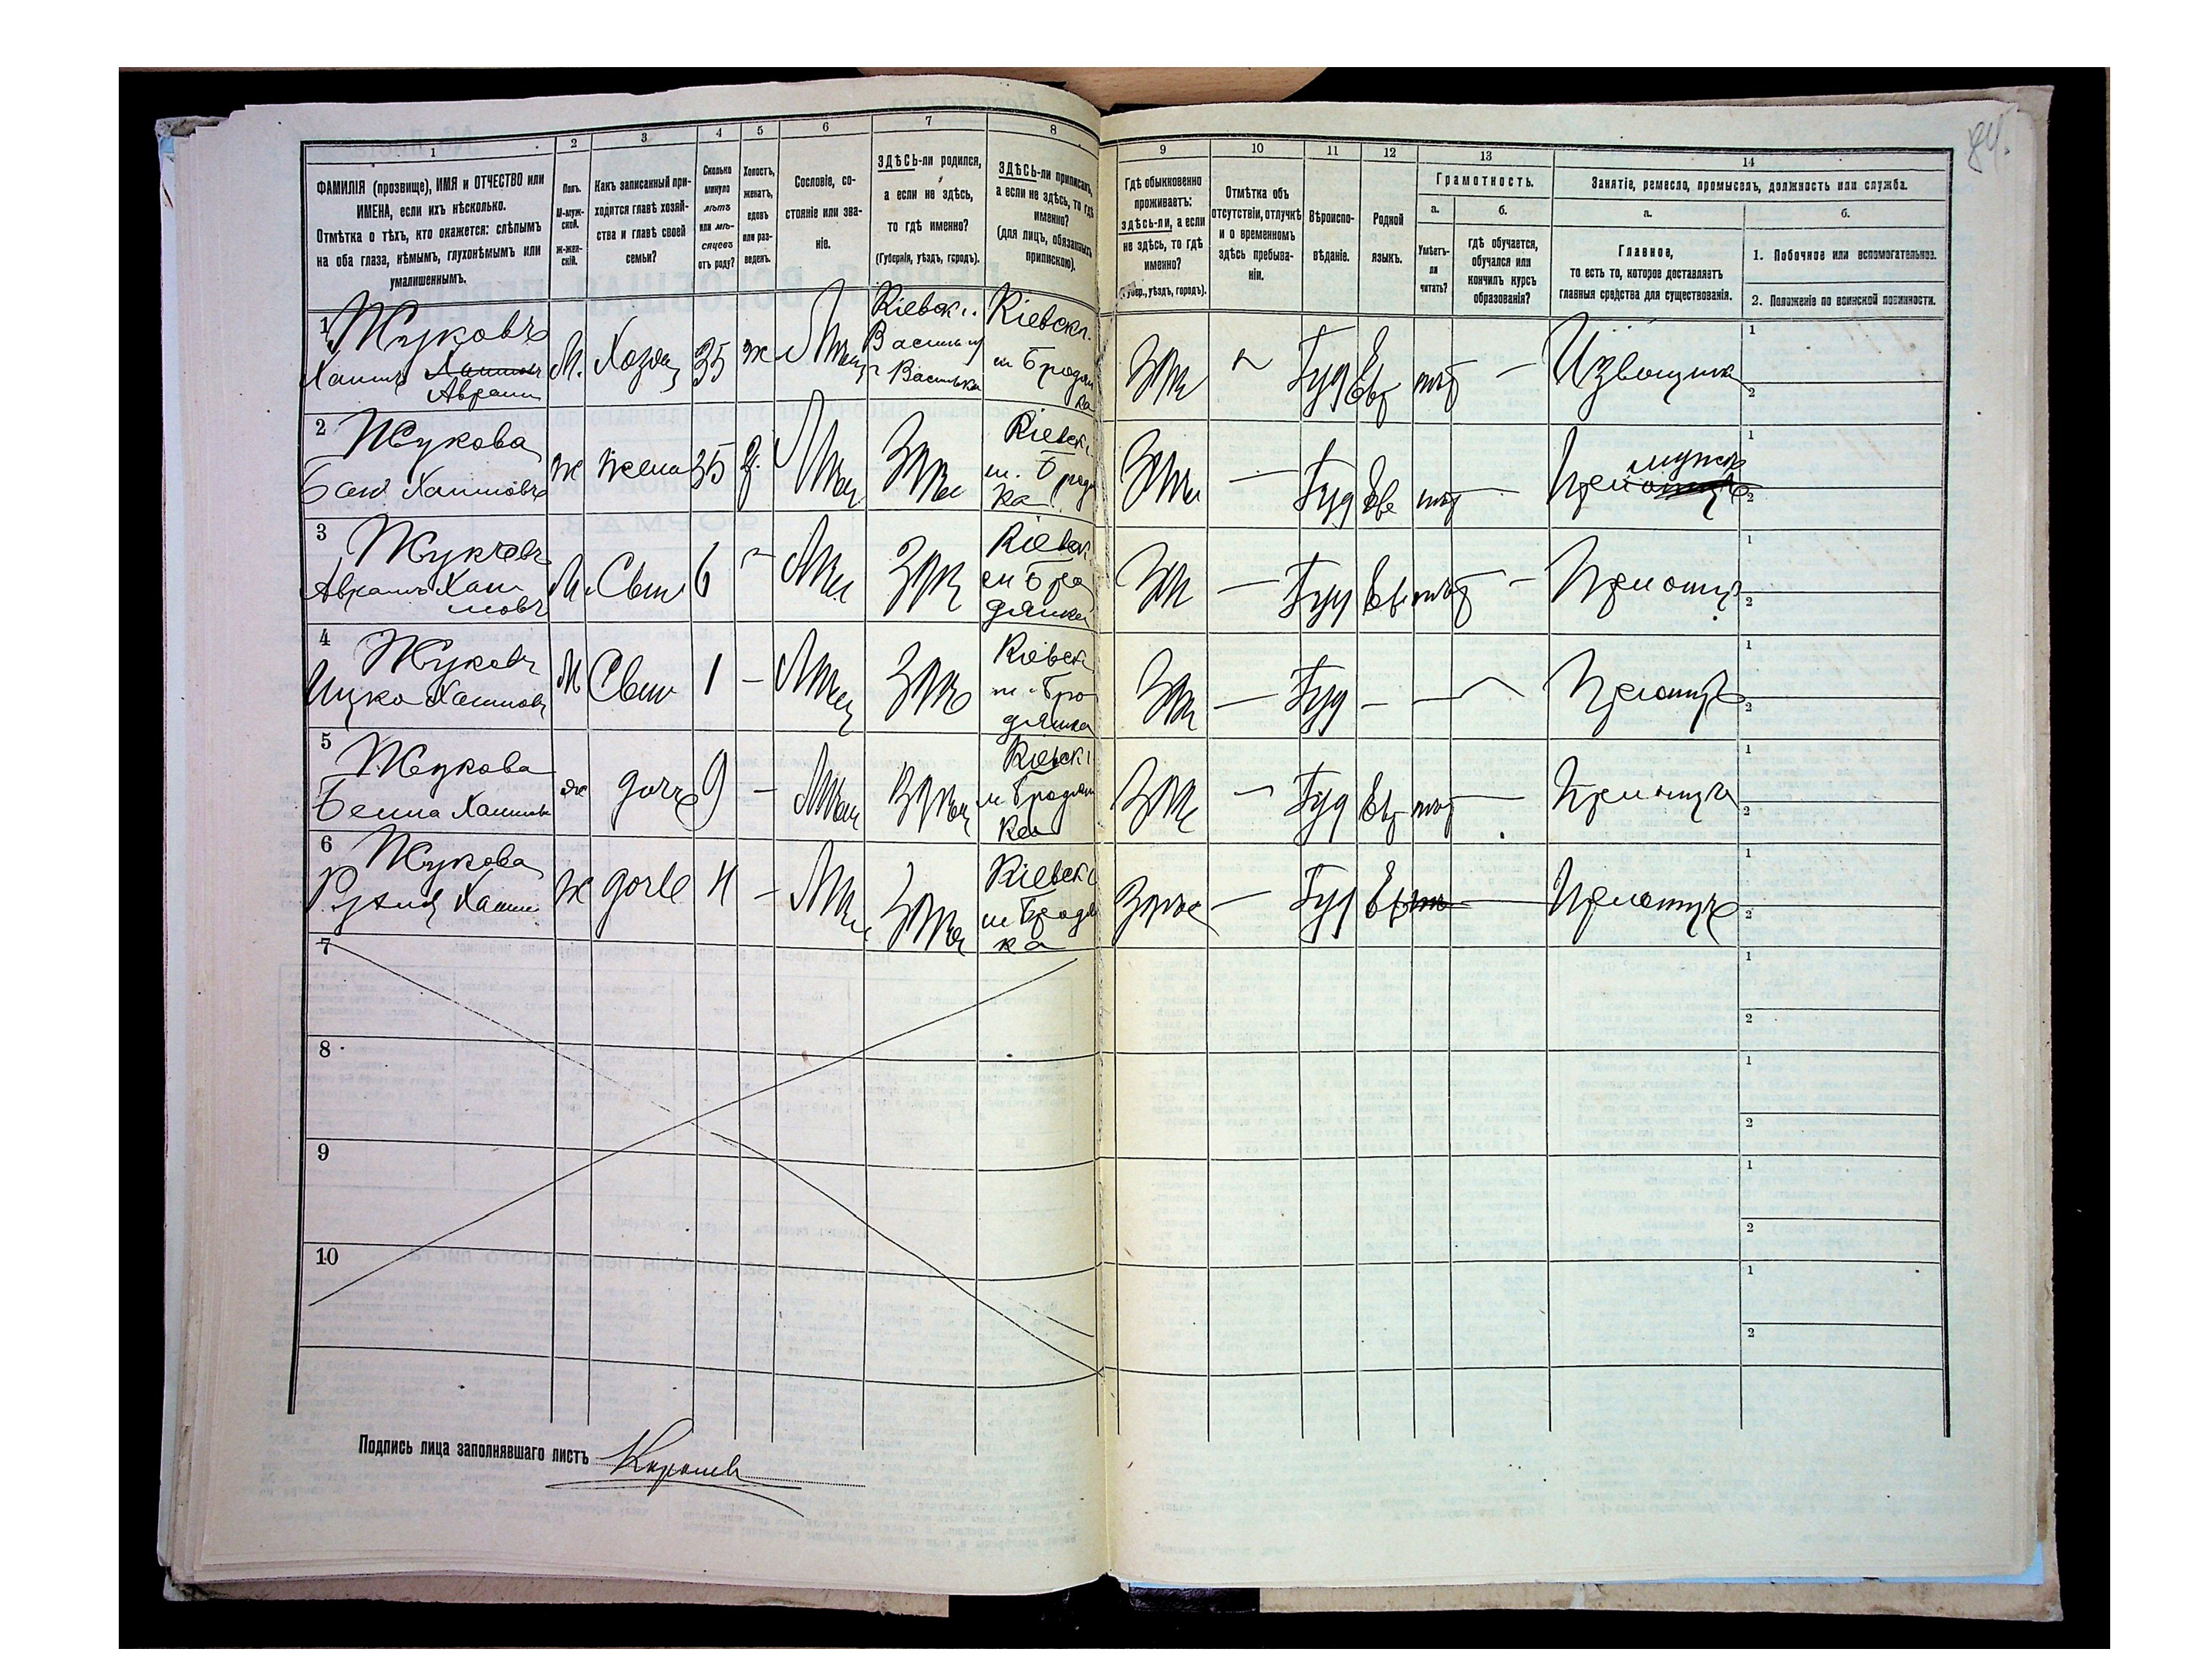 84.
1 2 3 4 5 6 7 8 9 10 11 12 13 14
ФАМИЛІЯ (прозвище), ИМЯ и ОТЧЕСТВО или
ИМЕНА, если ихъ нѣсколько.
Отмѣтка о тѣхъ, кто окажется: слѣпымъ
на оба глаза, нѣмымъ, глухонѣмымъ или
умалишеннымъ.
Полъ.
М-муж-
ской.
Ж-жен-
скій.
Какъ записанный при-
ходится главѣ хозяй-
ства и главѣ своей
семьи?
Сколько
минуло
лѣтъ
или мѣ-
сяцевъ
отъ роду?
Холостъ,
женатъ,
вдовъ
или раз-
веденъ.
Сословіе, со-
стояніе или зва-
ніе.
ЗДѢСЬ-ли родился,
а если не здѣсь,
то гдѣ именно?
(Губернія, уѣздъ, городъ).
ЗДѢСЬ-ли приписанъ,
а если не здѣсь, то гдѣ
именно?
(для лицъ, обязанныхъ
припискою).
Гдѣ обыкновенно
проживаетъ:
здѣсь-ли, а если
не здѣсь, то гдѣ
именно?
(Губер., уѣздъ, городъ).
Отмѣтка объ
отсутствіи, отлучкѣ
и о временномъ
здѣсь пребыва-
ніи.
Вѣроиспо-
вѣданіе.
Родной
языкъ.
Грамотность.
а.
Умѣетъ-
ли
читать?
б.
гдѣ обучается,
обучался или
кончилъ курсъ
образованія?
Занятіе, ремесло, промыселъ, должность или служба.
а.
Главное,
то есть то, которое доставляетъ
главныя средства для существованія.
б.
1. Побочное или вспомогательное.
2. Положеніе по воинской повинности.
1 Жуковъ
Хаимъ Аврам
М. Хозя 35 ж
Кіевск.
Васильк
Кіевск.
м Бродян
ка
Іуд Евр нѣт — Извощик
1
2
2 Жукова
Хаимовъ
ж жена 35 Мѣщ
Кіевск
м. Бродя
ка
— Іуд Евр нѣт — При мужѣ
1
2
3 Жуковъ
Аврамъ Хаи
мовъ
М Сынъ 6
Кіевск
м Бро
дянка
— Іуд Евр нѣт — При отцѣ
1
2
4 Жуковъ
Ицко Хаимовъ
М Сынъ 1 — Мѣщ
Кіевск
м. Бро
дянка
— Іуд — При отцѣ
1
2
5 Жукова
Бейла Хаимов
ж дочь 9 — Мѣщ
Кіевск
м Бродян
ка
— Іуд Евр нѣт — При отцѣ
1
2
6 Жукова
Хаим
Ж дочь 4 — Мѣщ
Кіевск
м Бродя
ка
— Іуд Евр — При отцѣ
1
2
7
1
2
8
1
2
9
1
2
10
1
2
Подпись лица заполнявшаго листъ